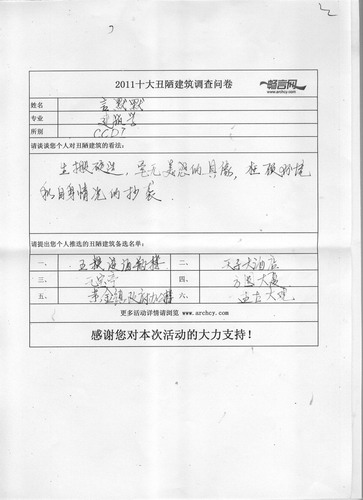 2011十大丑陋建筑调查问卷
畅言网
www.archcy.com
姓名
专业 建筑学
所别
请谈谈您个人对丑陋建筑的看法:
生搬硬造,毫无美感的具像,
和自身情况的抄袭
请提出您个人推选的丑陋建筑备选名单:
一、 五粮液酒瓶楼 二、 天子大酒店
三、 元宝亭 四、 万达大厦
五、 六、
更多活动详情请浏览 www.archcy.com
感谢您对本次活动的大力支持!